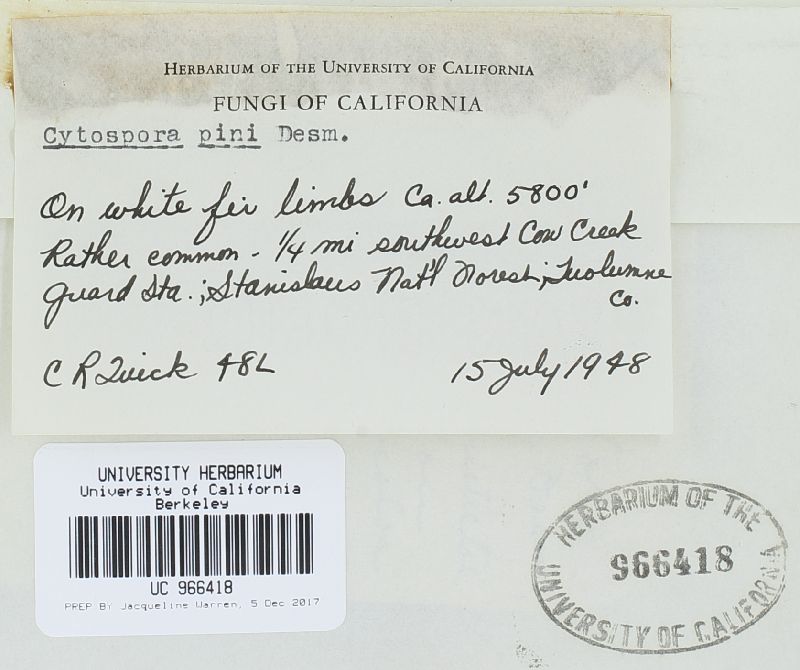 HERBARIUM OF THE UNIVERSITY OF CALIFORNIA
FUNGI OF CALIFORNIA
Cytospora pini Desm.
On white fir limbs Ca. alt. 5800'
Rather common - 1/4 mi southwest Cow Creek
Guard Sta.; Stanislaus Nat'l Forest; Tuolumne
Co.
C R Quick 48L 15 July 1948
UNIVERSITY HERBARIUM
University of California
Berkeley
UC 966418
PREP BY Jacqueline Warren, 5 Dec 2017
HERBARIUM OF THE
966418
UNIVERSITY OF CALIFORNIA